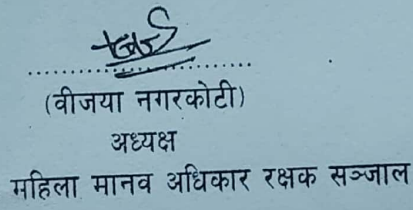 (वीजया नगरकोटी)
अध्यक्ष
महिला मानव अधिकार रक्षक सञ्जाल